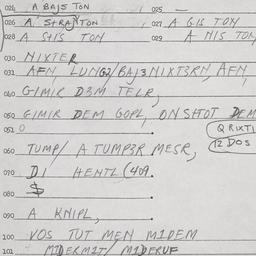 024 A BAJS TON 025 —
026 A STRANTON 027 A GIS TON
028 A SHS TON 029 A NIS TON
030 NIXTER
031 AFN, LUNG2/BAJ3NIXT3RN, AFN,
040 GIMIR D3M TELR,
050 GIMIR DEM GOPL, ONSHOT DEM
052 O QRIXTI
060 TUMP/ A TUMP3R MESR, 12 DOS
070 DI HENTL (409.
080 $
090 A KNIPL,
100 VOS TUT MEN MIDEM
101 MIDERMIT/ MIDERUF